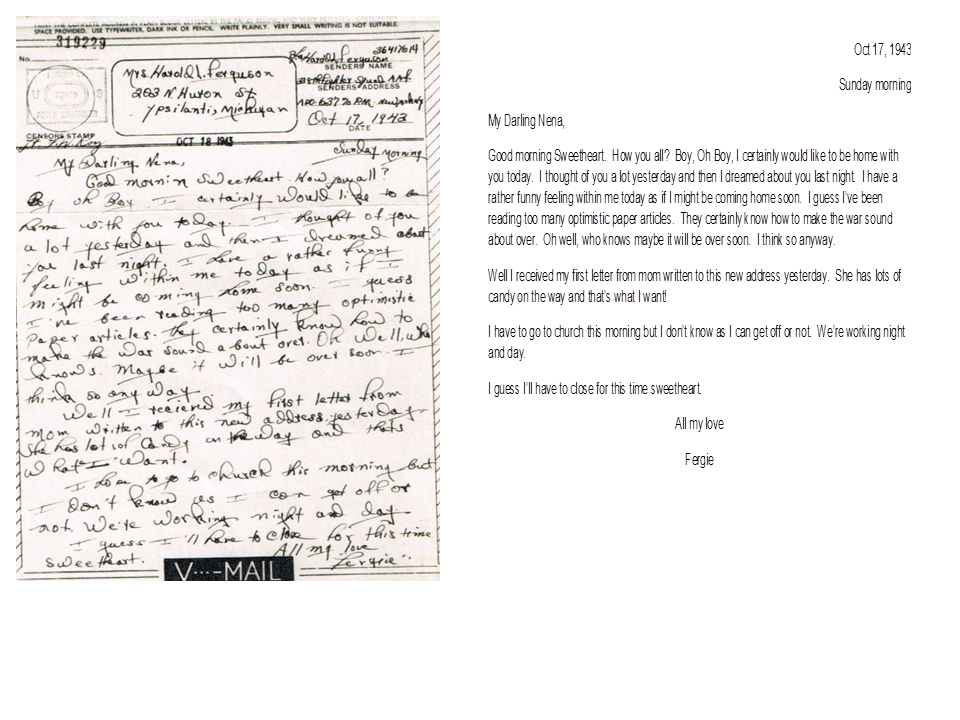 SPACE PROVIDED. USE TYPEWRITER, DARK INK OR PENCIL. WRITE PLAINLY. VERY SMALL WRITING IS NOT SUITABLE.
319229
No.
Mrs. Harold L. Ferguson
263 N Huron St
Ypsilanti, Michigan
Harold L. Ferguson 36417614
SENDER'S NAME
SENDER'S ADDRESS
APO 637 % P.M. New York
Oct 17, 1943
DATE
U S
CENSORS STAMP
OCT 18 1943
Sunday Morning
My Darling Nena,
Good mornin Sweetheart. How you all?
Boy oh Boy I certainly would like to be
home with you today. I thought of you
a lot yesterday and then I dreamed about
you last night. I have a rather funny
feeling within me today as if I
might be coming home soon. I guess
I've been reading too many optimistic
paper articles. They certainly know how to
make the war sound about over. Oh well, who
knows. Maybe it will be over soon. I
think so any way.
Well I received my first letter from
mom written to this new address yesterday
She has lots of candy on the way and thats
what I want.
I have to go to church this morning but
I don't know as I can get off or
not. We're working night and day
I guess I'll have to close for this time
sweetheart.
All my love
Fergie
V···-MAIL
Oct 17, 1943
Sunday morning
My Darling Nena,
Good morning Sweetheart. How you all? Boy, Oh Boy, I certainly would like to be home with
you today. I thought of you a lot yesterday and then I dreamed about you last night. I have a
rather funny feeling within me today as if I might be coming home soon. I guess I've been
reading too many optimistic paper articles. They certainly know how to make the war sound
about over. Oh well, who knows maybe it will be over soon. I think so anyway.
Well I received my first letter from mom written to this new address yesterday. She has lots of
candy on the way and that's what I want!
I have to go to church this morning but I don't know as I can get off or not. We're working night
and day.
I guess I'll have to close for this time sweetheart.
All my love
Fergie